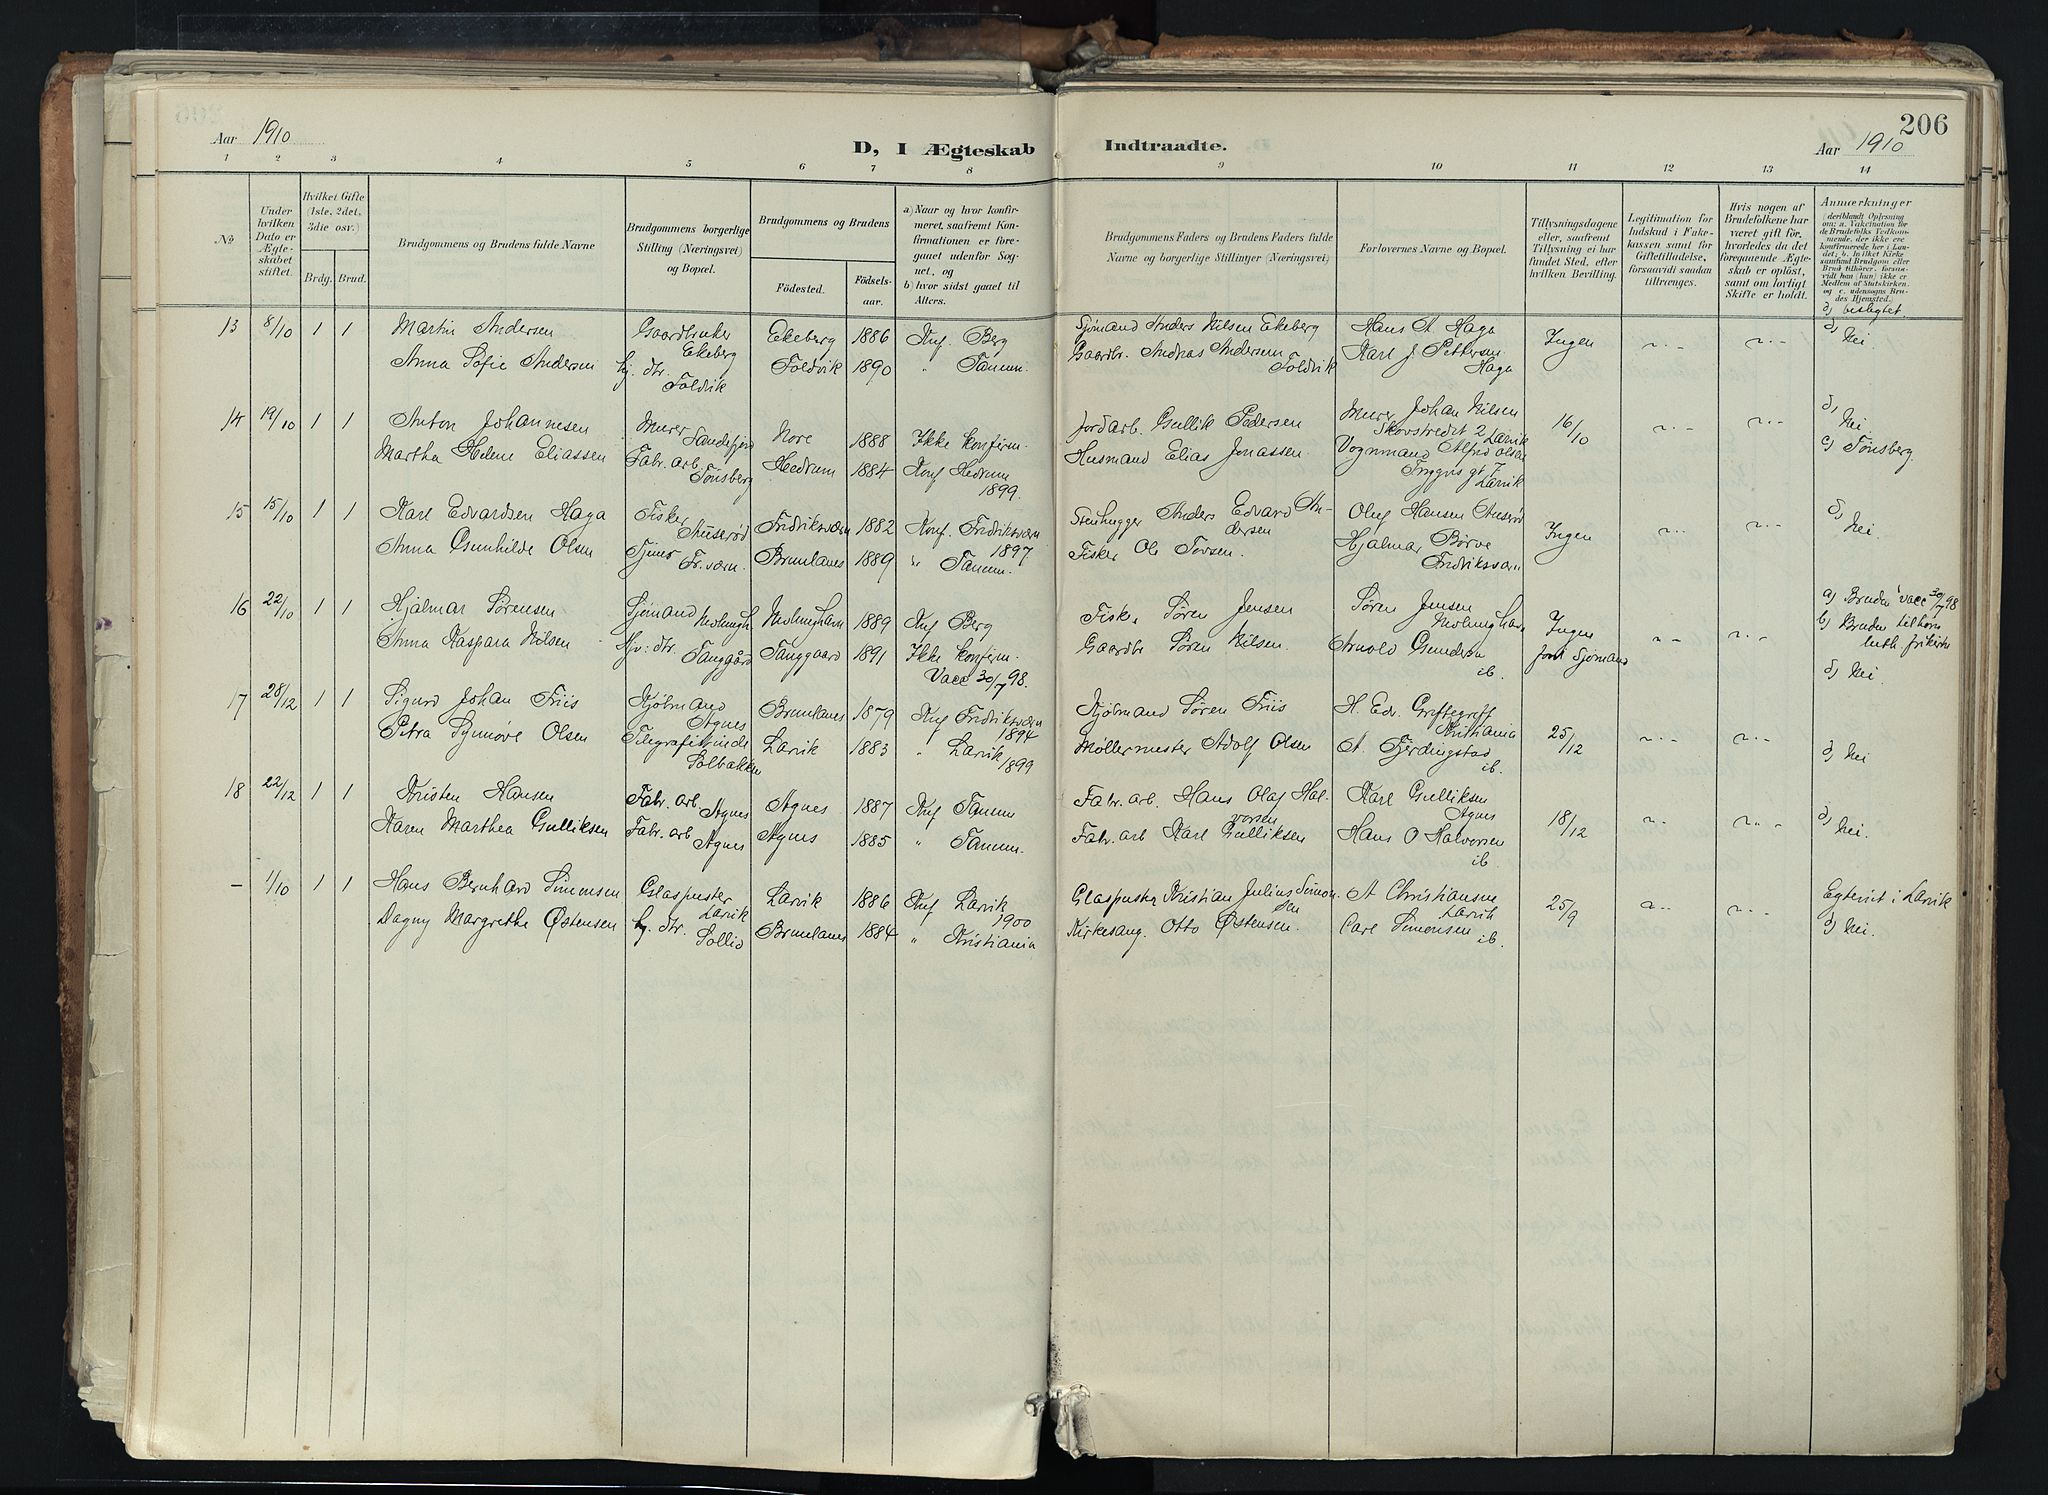 Aar 1910
D, I Ægteskab Indtraadte.
206
Aar 1910
1 2 3 4 5 6 7 8 9 10 11 12 13 14
No
Under hvilken Dato er Ægteskabet stiftet.
Hvilket Gifte (1ste, 2det, 3die osv.)
Brdg. Brud.
Brudgommens og Brudens fulde Navne
Brudgommens borgerlige Stilling (Næringsvei) og Bopæl.
Brudgommens og Brudens
Fødested.
Fødselsaar.
a) Naar og hvor konfirmeret, saafremt Konfirmationen er foregaaet udenfor Sognet, og
b) hvor sidst gaaet til Alters.
Brudgommens Faders og Brudens Faders fulde Navne og borgerlige Stillinger (Næringsvei)
Forlovernes Navne og Bopæl.
Tillysningsdagene eller, saafremt Tillysning ei har fundet Sted, efter hvilken Bevilling.
Legitimation for Indskud i Enkekassen samt for Giftetilladelse, forsaavidt saadan tiltrænges.
Hvis nogen af Brudefolkene har været gift før, hvorledes da det foregaaende Ægteskab er opløst, samt om lovligt Skifte er holdt.
Anmerkninger
d) beslægtet.
13 8/10 1 1 Martin Andersen Gaardbruker Ekeberg Ekeberg 1886 Knf. Berg Sjømand Anders Nilsen Ekeberg Hans A. Haga Ingen d) Nei.
Anna Sofie Andersen hj. dtr. Foldvik Foldvik 1890 " Tanum. Gaardbr. Andreas Andersen Foldvik Karl J. Pettersen Haga
14 19/10 1 1 Anton Johannesen Murer Sandefjord Nore 1888 Ikke konfirm. Jordarb. Gullik Pedersen Murer Johan Nilsen Skovstredet 2 Larvik 16/10 d) Nei.
Martha Helene Eliassen Fabr. arb. Tønsberg Hedrum 1884 Konf Hedrum 1899. Husmand Elias Jonassen. Vognmand Alfred Olsen Larvik c) Tønsberg.
15 15/10 1 1 Karl Edvardsen Haga Fisker Auserød Fredriksværn 1882 Konf. Fredriksværn 1897 Stenhugger Anders Edvard Andersen Oluf Hansen Auserød Ingen d) Nei.
Anna Gunhilde Olsen Tjener Fr.værn. Brunlanes 1889 " Tanum. Fisker Ole Torsen. Hjalmar Børve Fredriksværn
16 22/10 1 1 Hjalmar Sørensen Sjømand Nevlungh. Nevlunghavn 1889 Knf Berg Fisker Søren Jensen Søren Jensen Nevlunghavn Ingen fort Sjømand a) Bruden vacc 30/7 98
Anna Kaspara Nilsen Hj: dtr. Tanggård Tanggaard 1891 Ikke konfirm. Vacc 30/7 98. Gaardbr Søren Nilsen. Arnold Gundersen ib. b) Bruden tilhører luth. frikirke d) Nei.
17 28/12 1 1 Sigurd Johan Friis Kjøbmand Agnes Brunlanes 1879 Knf Fredriksværn 1894 Kjøbmand Søren Friis H. Edv. Kristiania 25/12 d) Nei
Petra Synnøve Olsen Telegrafistinde Solbakken Larvik 1883 " Larvik 1899 Møllermester Adolf Olsen A. Fjerdingstad ib.
18 22/12 1 1 Kristen Hansen Fabr. arb. Agnes Agnes 1887 Knf Tanum Fabr. arb. Hans Olaf Halvorsen Karl Gulliksen Agnes 18/12 d) Nei.
Karen Marthea Gulliksen Fabr. arb Agnes Agnes 1885 " Tanum. Fabr. arb Karl Gulliksen Hans O Halvorsen ib.
– 1/10 1 1 Hans Bernhard Simonsen Glaspuster Larvik Larvik 1886 Knf Larvik 1900 Glaspuster Kristian Julius Simonsen A Christiansen Larvik 25/9 Egteviet i Larvik
Dagny Margrethe Østensen hj. dtr. Sollid Brunlanes 1884 " Kristiania Kirkesang. Otto Østensen. Carl Simonsen ib. d) Nei.